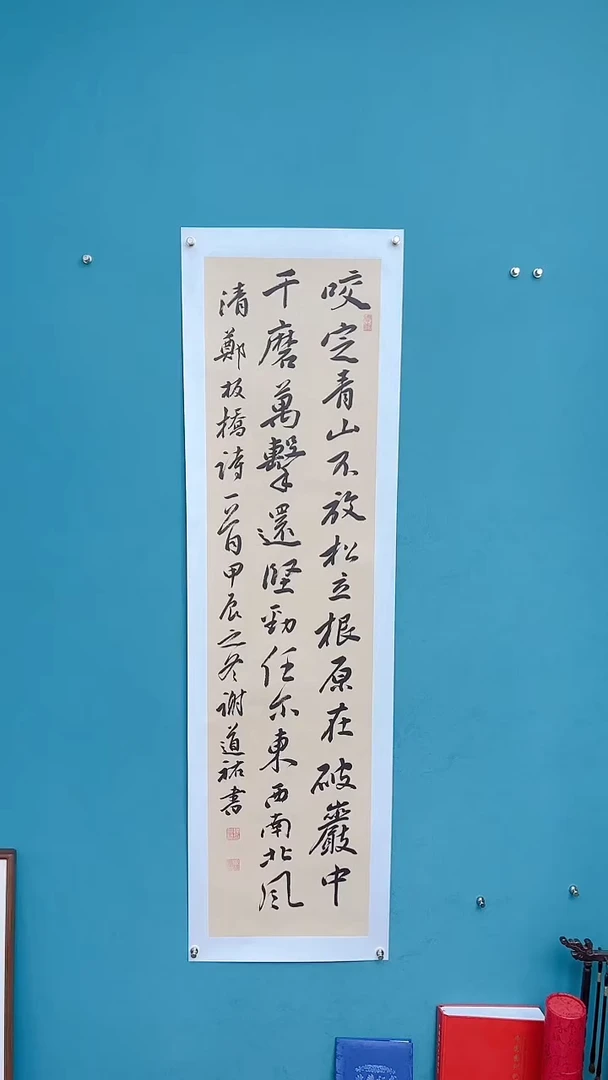 咬定青山不放松立根原在破巖中
千磨萬擊還堅勁任尔東西南北风
清鄭板橋詩一首甲辰之冬谢道祐書